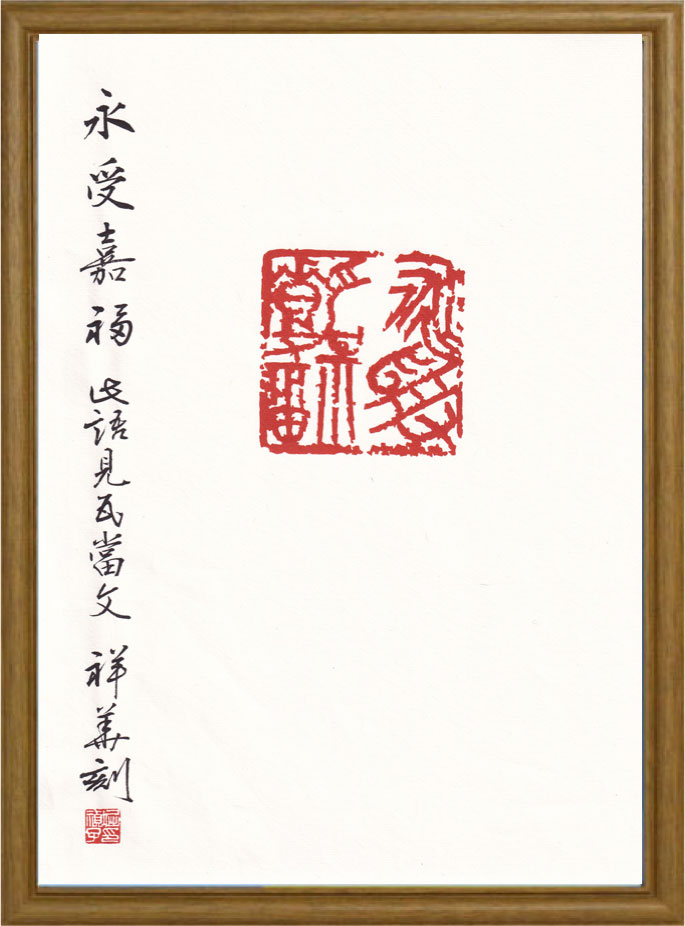 永受
嘉福
永受嘉福 此語見瓦當文 祥華刻